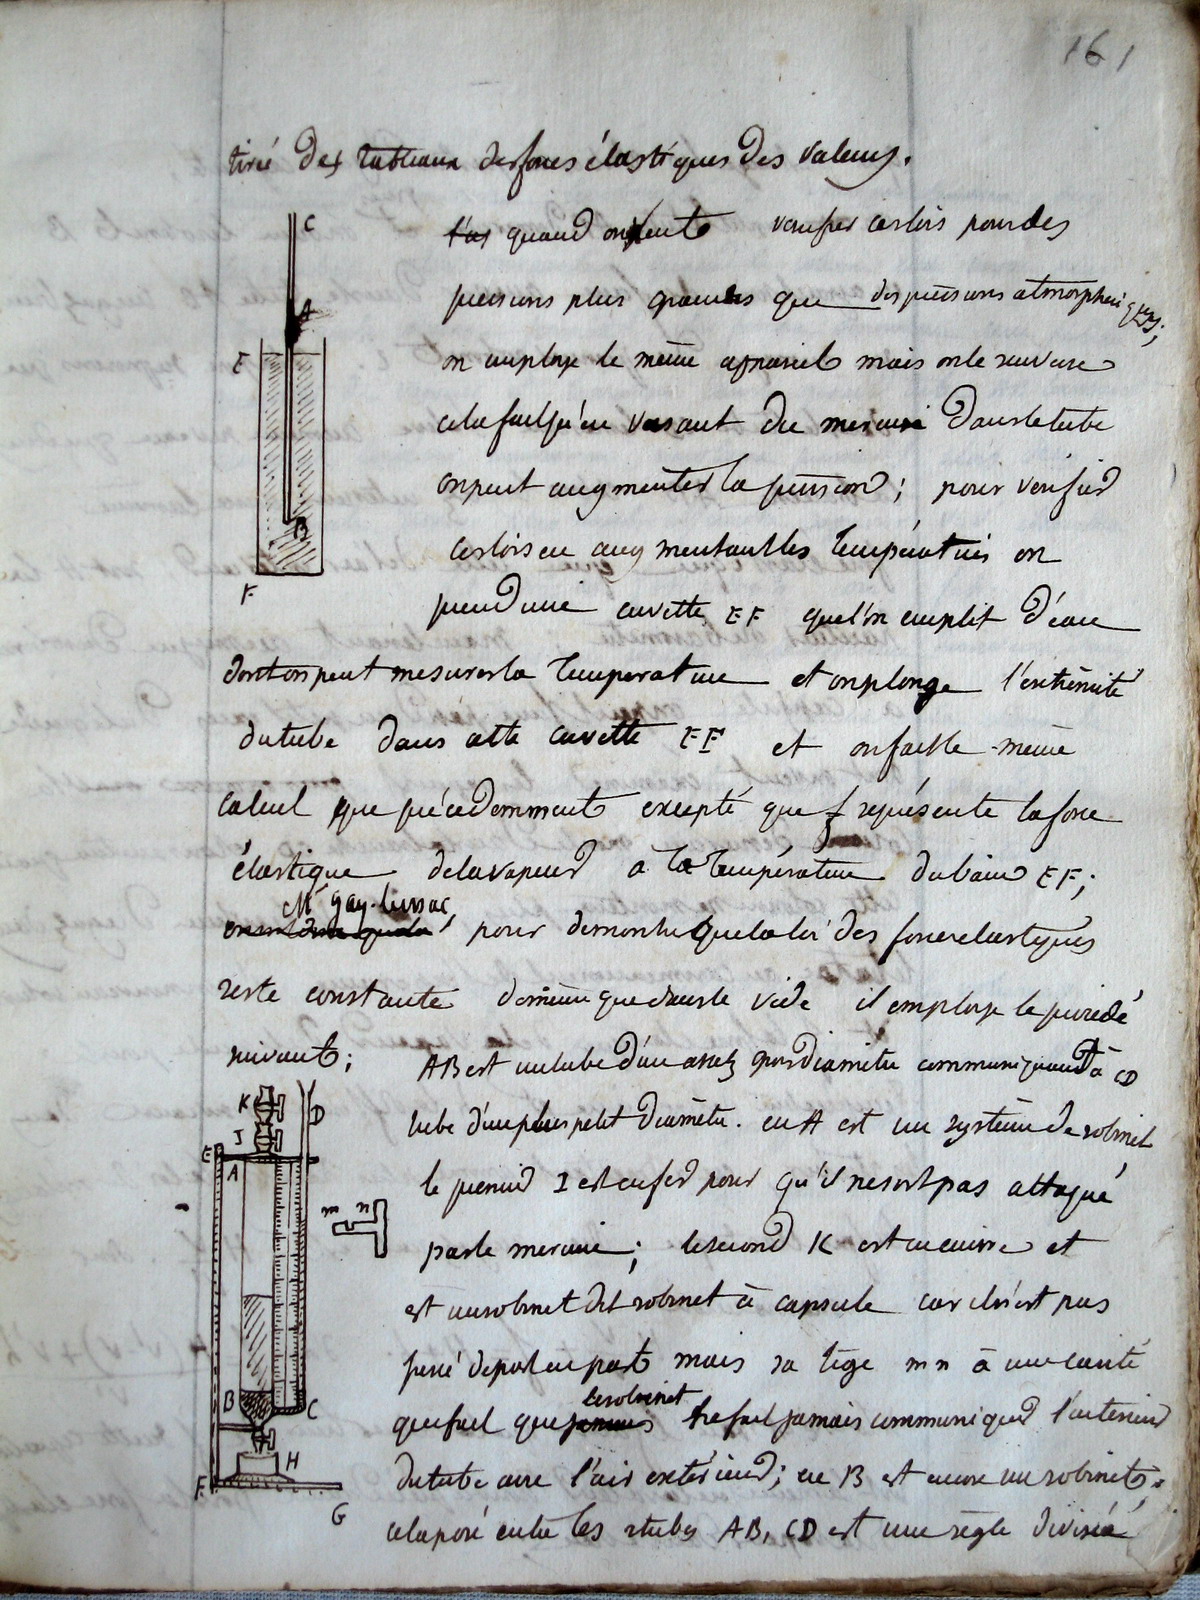 161
tiré des tableaux des forces élastiques des valeurs.
quand on veut verifier ces lois pour des
pressions plus grandes que des pressions atmospheriques;
on employe le même appareil mais on le renverse
cela fait qu'en versant du mercure dans le tube
on peut augmenter la pression; pour vérifier
ces lois en augmentant les températures on
prend une cuvette EF que l'on emplit d'eau
dont on peut mesurer la température et on plonge l'extrémité
du tube dans cette cuvette EF et on fait le même
calcul que précédemment excepté que f représente la force
élastique de la vapeur à la température du bain EF;
Mr gay-lussac,
pour demontrer que la loi des forces elastiques
reste constante de même que dans le vide il employe le procédé
suivant; AB est un tube d'un assez gros diamètre communiquant à CD
tube d'un plus petit diamètre. en A est un système de robinet
le premier I est en fer pour qu'il ne soit pas attaqué
par le mercure; le second K est en cuivre et
est un robinet dit robinet à capsule car il n'est pas
percé de part en part mais sa tige mn à une cavité
le robinet
qui fait que ne fait jamais communiquer l'interieur
du tube avec l'air extérieur; en B est encore un robinet,
cela posé entre les 2 tubes AB, CD est une règle divisée
C
A
E
B
F
K
D
I
E
A
m n
B
C
H
F
G